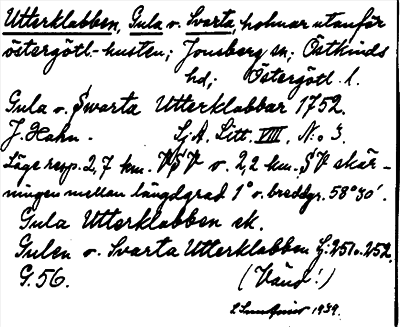 Utterklabben, Gula o. Svarta, holmar utanför
östergötl-kusten; Jonsberg sn, Östkinds
hd, Östergötl. l.
Gula o. Swarta Utterklabbar 1752.
J. Hahn. Sj.A. Litt. VIII, N:o 3.
Läge resp. 2,7 km. VSV o. 2,2 km. SV skär-
ningen mellan längdgrad 1° o. breddgr. 58°30'.
Gula Utterklabben ek.
Gulen o. Svarta Utterklabben G:251 o. 252.
G. 56. (Vänd!)
1939.